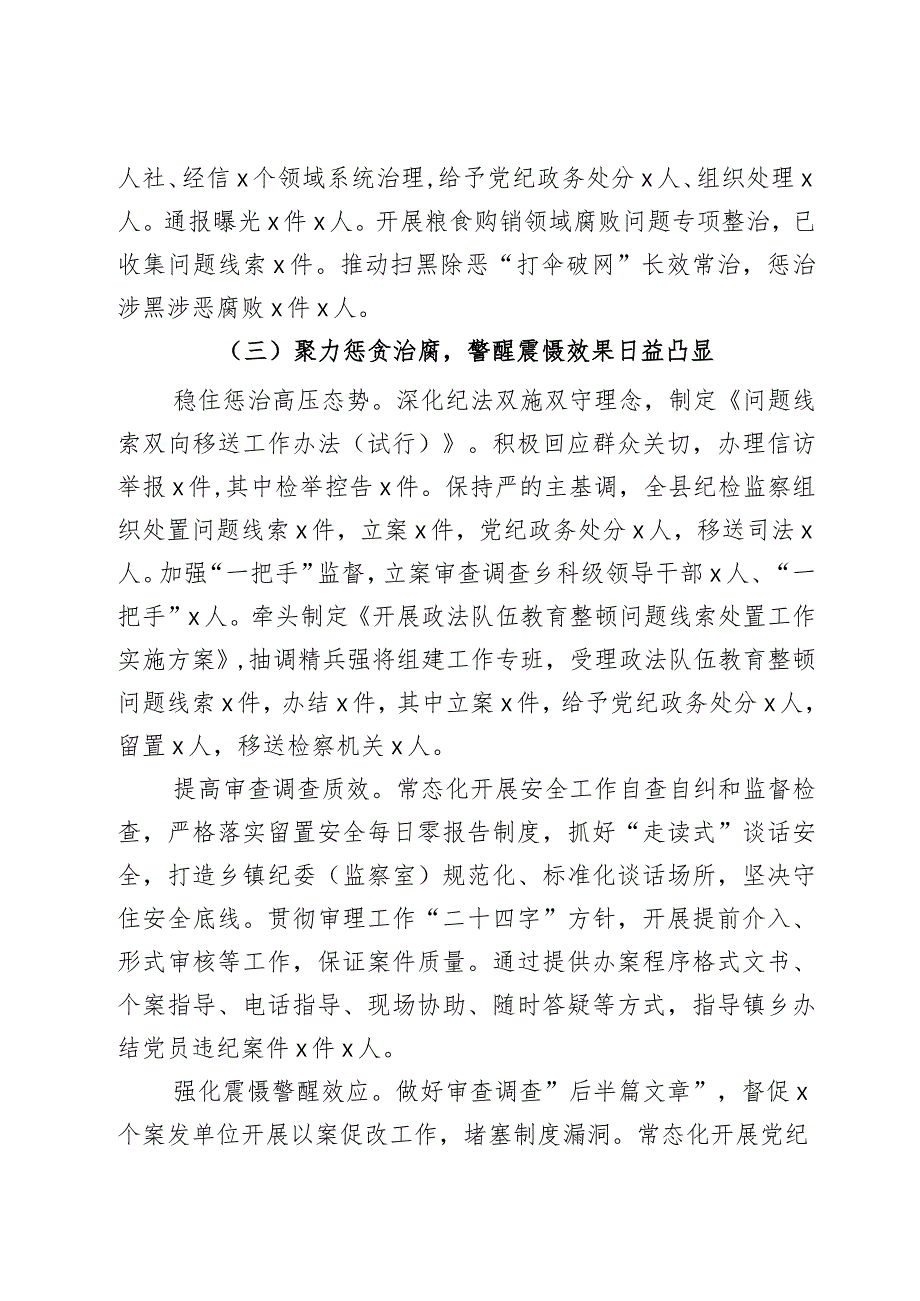 人社、经信x个领域系统治理,给予党纪政务处分x人、组织处理x
人。通报曝光x件x人。开展粮食购销领域腐败问题专项整治，已
收集问题线索x件。推动扫黑除恶“打伞破网”长效常治，惩治
涉黑涉恶腐败x件x人。
（三）聚力惩贪治腐，警醒震慑效果日益凸显
稳住惩治高压态势。深化纪法双施双守理念，制定《问题线
索双向移送工作办法（试行）》。积极回应群众关切，办理信访
举报x件,其中检举控告x件。保持严的主基调，全县纪检监察组
织处置问题线索x件，立案x件，党纪政务处分x人，移送司法x
人。加强“一把手”监督，立案审查调查乡科级领导干部x人、“一
把手”x人。牵头制定《开展政法队伍教育整顿问题线索处置工作
实施方案》,抽调精兵强将组建工作专班，受理政法队伍教育整顿
问题线索x件，办结x件，其中立案x件，给予党纪政务处分x人，
留置x人，移送检察机关x人。
提高审查调查质效。常态化开展安全工作自查自纠和监督检
查，严格落实留置安全每日零报告制度，抓好“走读式”谈话安
全，打造乡镇纪委（监察室）规范化、标准化谈话场所，坚决守
住安全底线。贯彻审理工作“二十四字”方针，开展提前介入、
形式审核等工作，保证案件质量。通过提供办案程序格式文书、
个案指导、电话指导、现场协助、随时答疑等方式，指导镇乡办
结党员违纪案件x件x人。
强化震慑警醒效应。做好审查调查”后半篇文章”，督促x
个案发单位开展以案促改工作，堵塞制度漏洞。常态化开展党纪